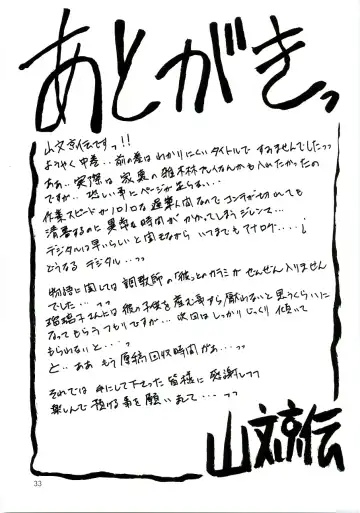 あとがきっ
山文京伝ですっ!!
ようやく中巻‥前の巻は わかりにくいタイトルで すみませんでしたっっ
ああ‥実際は 放裏の雑木林プレイなんかも入れたかったの
ですが‥悲しい事にページが足らない‥
作業スピードがノロノロな遅筆人間なので コンテが切れても
清書するのに異常な時間が かかってしまうジレンマ‥
デジタルは早いらしいと聞きながら いつまでもアナログ‥‥
どうなる デジタル‥っっ
物語に関しては 調教師の「彼」とのカラミが ぜんぜん入りません
でした‥っっ
瑠璃子さんには 彼の子供を産む事すら厭わないと思うくらいに
なってもらうつもりですが‥次回はしっかりじっくり 化けて
もらわないと‥っ
と‥ああ もう 原稿回収時間がぁ‥っっ
それでは 手にして下さった 皆様に 感謝しつつ
楽しんで頂ける事を願いまして‥っっ
山文京伝
33